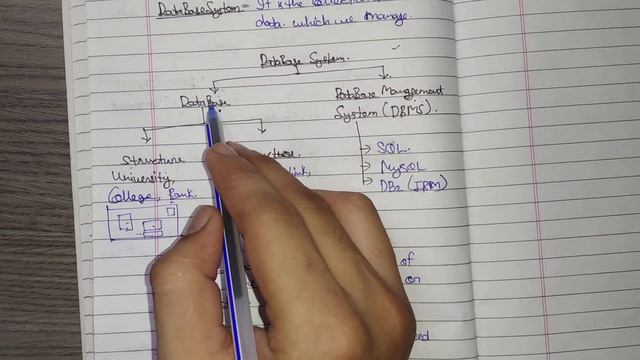 DataBaseSystem = It is the
data. which we manage.
DataBase System.
DataBase
DataBase Management
System (DBMS).
Structure
University,
College, Bank.
→ SQL.
→ MySQL
→ DB2 (IBM)
of
or